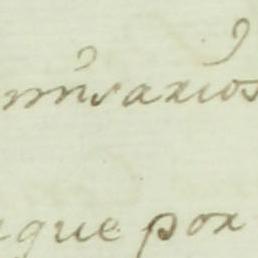 missarios
que por